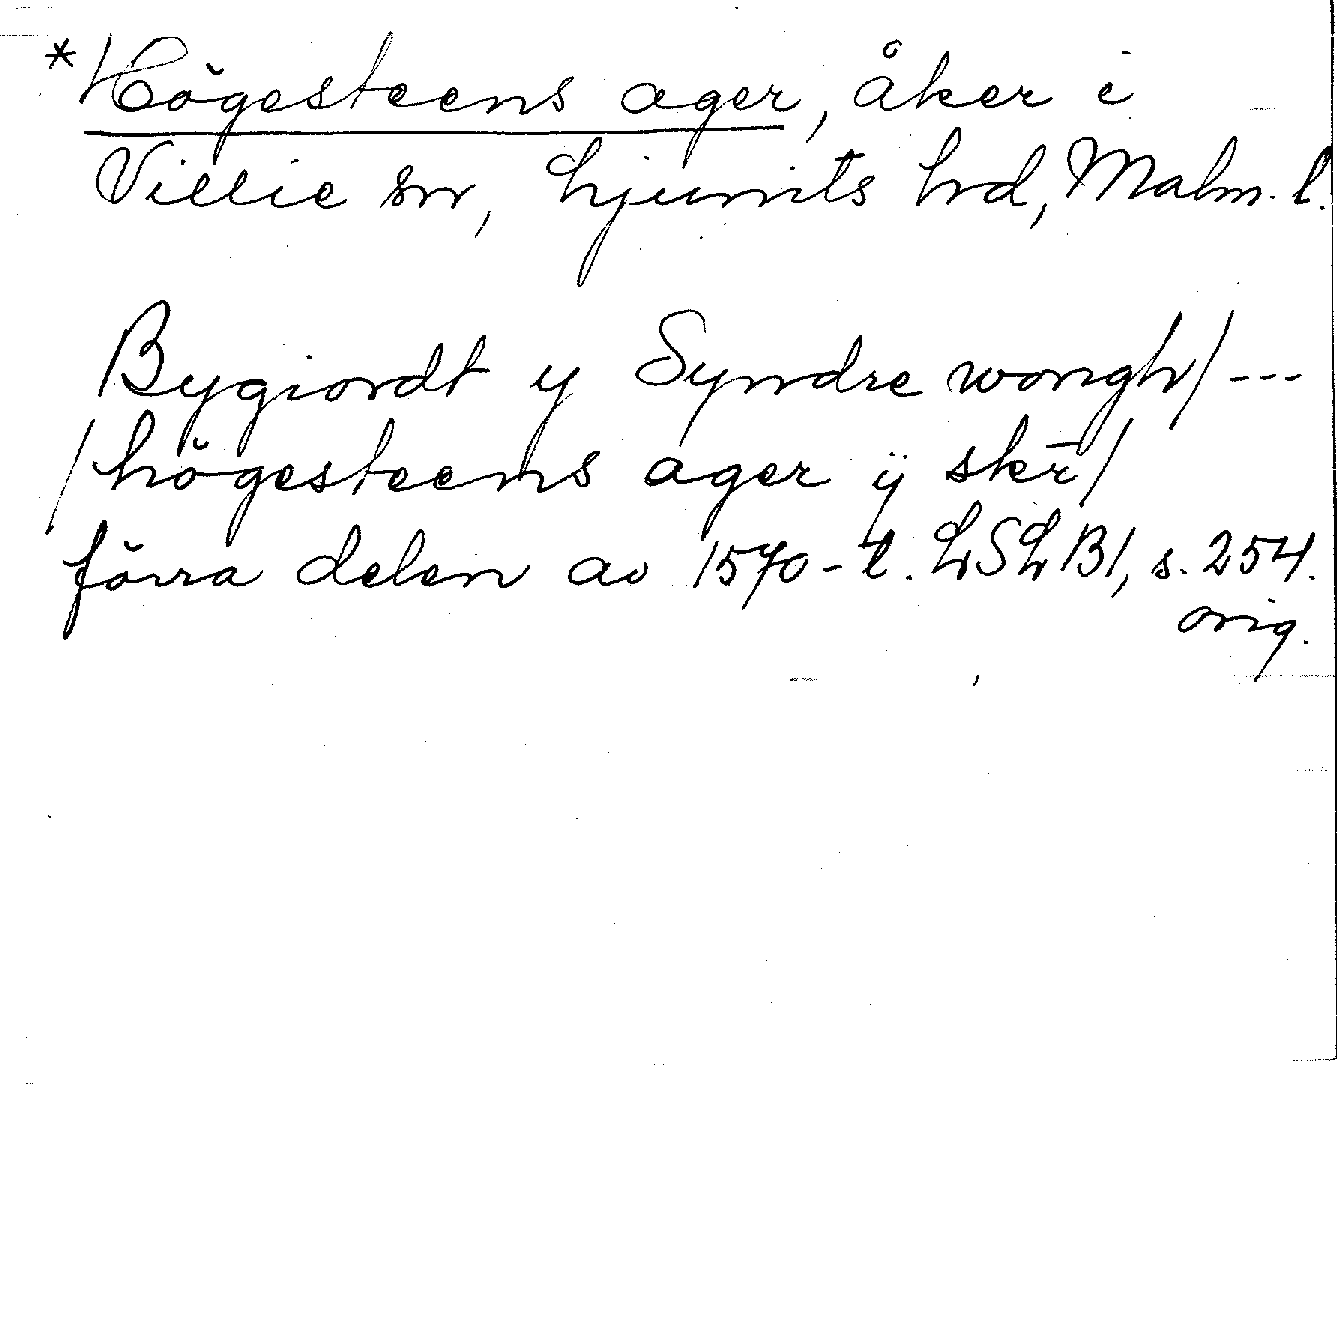 *Högesteens ager, åker i
Villie sn, Ljunits hrd, Malm. l.
Bygiordt y Syndre wongh/ ---
/högesteens ager ÿ skr̄/
förra delen av 1570-t. LSLB1, s. 254.
orig.